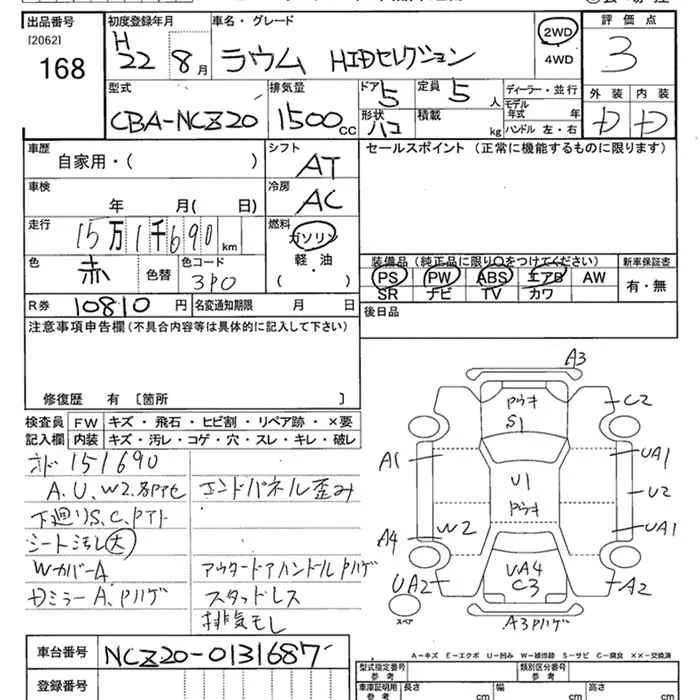 出品番号
[2062]
168
初度登録年月
H 22 8月
車名・グレード
ラウム HIDセレクション
2WD
4WD
評価点
3
型式
CBA-NCZ20
排気量
1500cc
ドア 5
定員 5人
形状 ハコ
積載 kg
ディーラー・並行
モデル年式 年
ハンドル 左・右
外装
内装
D D
車歴
自家用・( )
シフト
AT
セールスポイント (正常に機能するものに限ります)
車検
年 月( 日)
冷房
AC
走行
15万1千690km
燃料
ガソリン
軽油
( )
色
赤
色替
色コード
3P0
装備品 (純正品に限り○をつけてください)
新車保証書
PS PW ABS エアB AW
有・無
SR ナビ TV カワ
R券 10810円
名変通知期限 月 日
後日品
注意事項申告欄 (不具合内容等は具体的に記入して下さい)
修復歴 有 〔箇所 〕
検査員記入欄
FW キズ・飛石・ヒビ割・リペア跡・×要
内装 キズ・汚レ・コゲ・穴・スレ・キレ・破レ
151690
A.U.W2.各Pアセ
エンドパネル歪み
下廻りS.C.Pアト
シート汚レ大
Wカバーム
アウタードアハンドルPハゲ
DミラーA.Pハゲ
スタッドレス
排気モレ
A3
Pウキ
S1
C2
A1
U1
Pウキ
UA1
U2
A4
W2
UA1
UA2
UA4
C3
A2
スペア
A3Pハゲ
A-キズ E-エクボ U-凹み W-補修跡 S-サビ C-腐食 XX-交換済
車台番号
NCZ20-0131687
登録番号
型式指定番号
参考
類別区分番号
参考
車庫証明用
参考
長さ cm
幅 cm
高さ cm